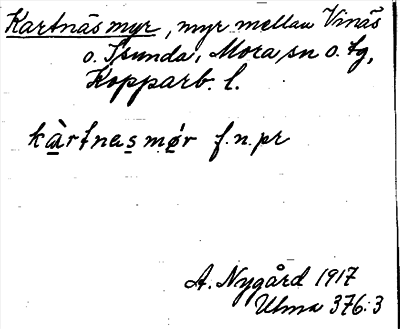 Kartnäsmyr, myr mellan Vinäs
o. Isunda, Mora sn o. tg,
Kopparb. l.
kàrtnasmø̀r f.n.pr
A. Nygård 1917
Ulma 376:3